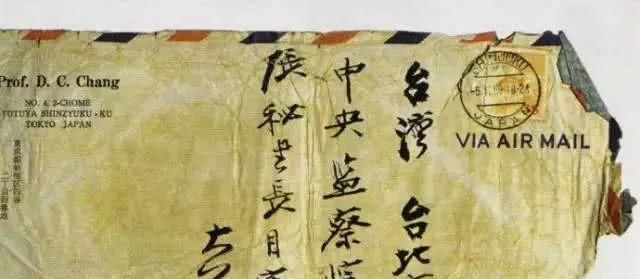 Prof. D. C. Chang
NO. 4, 2-CHOME
YOTUYA SHINZYUKU-KU
TOKYO JAPAN
東京都新宿区四谷
二丁目四番地
JAPAN
VIA AIR MAIL
台灣 台北
中央監察院
張秘書長目
大